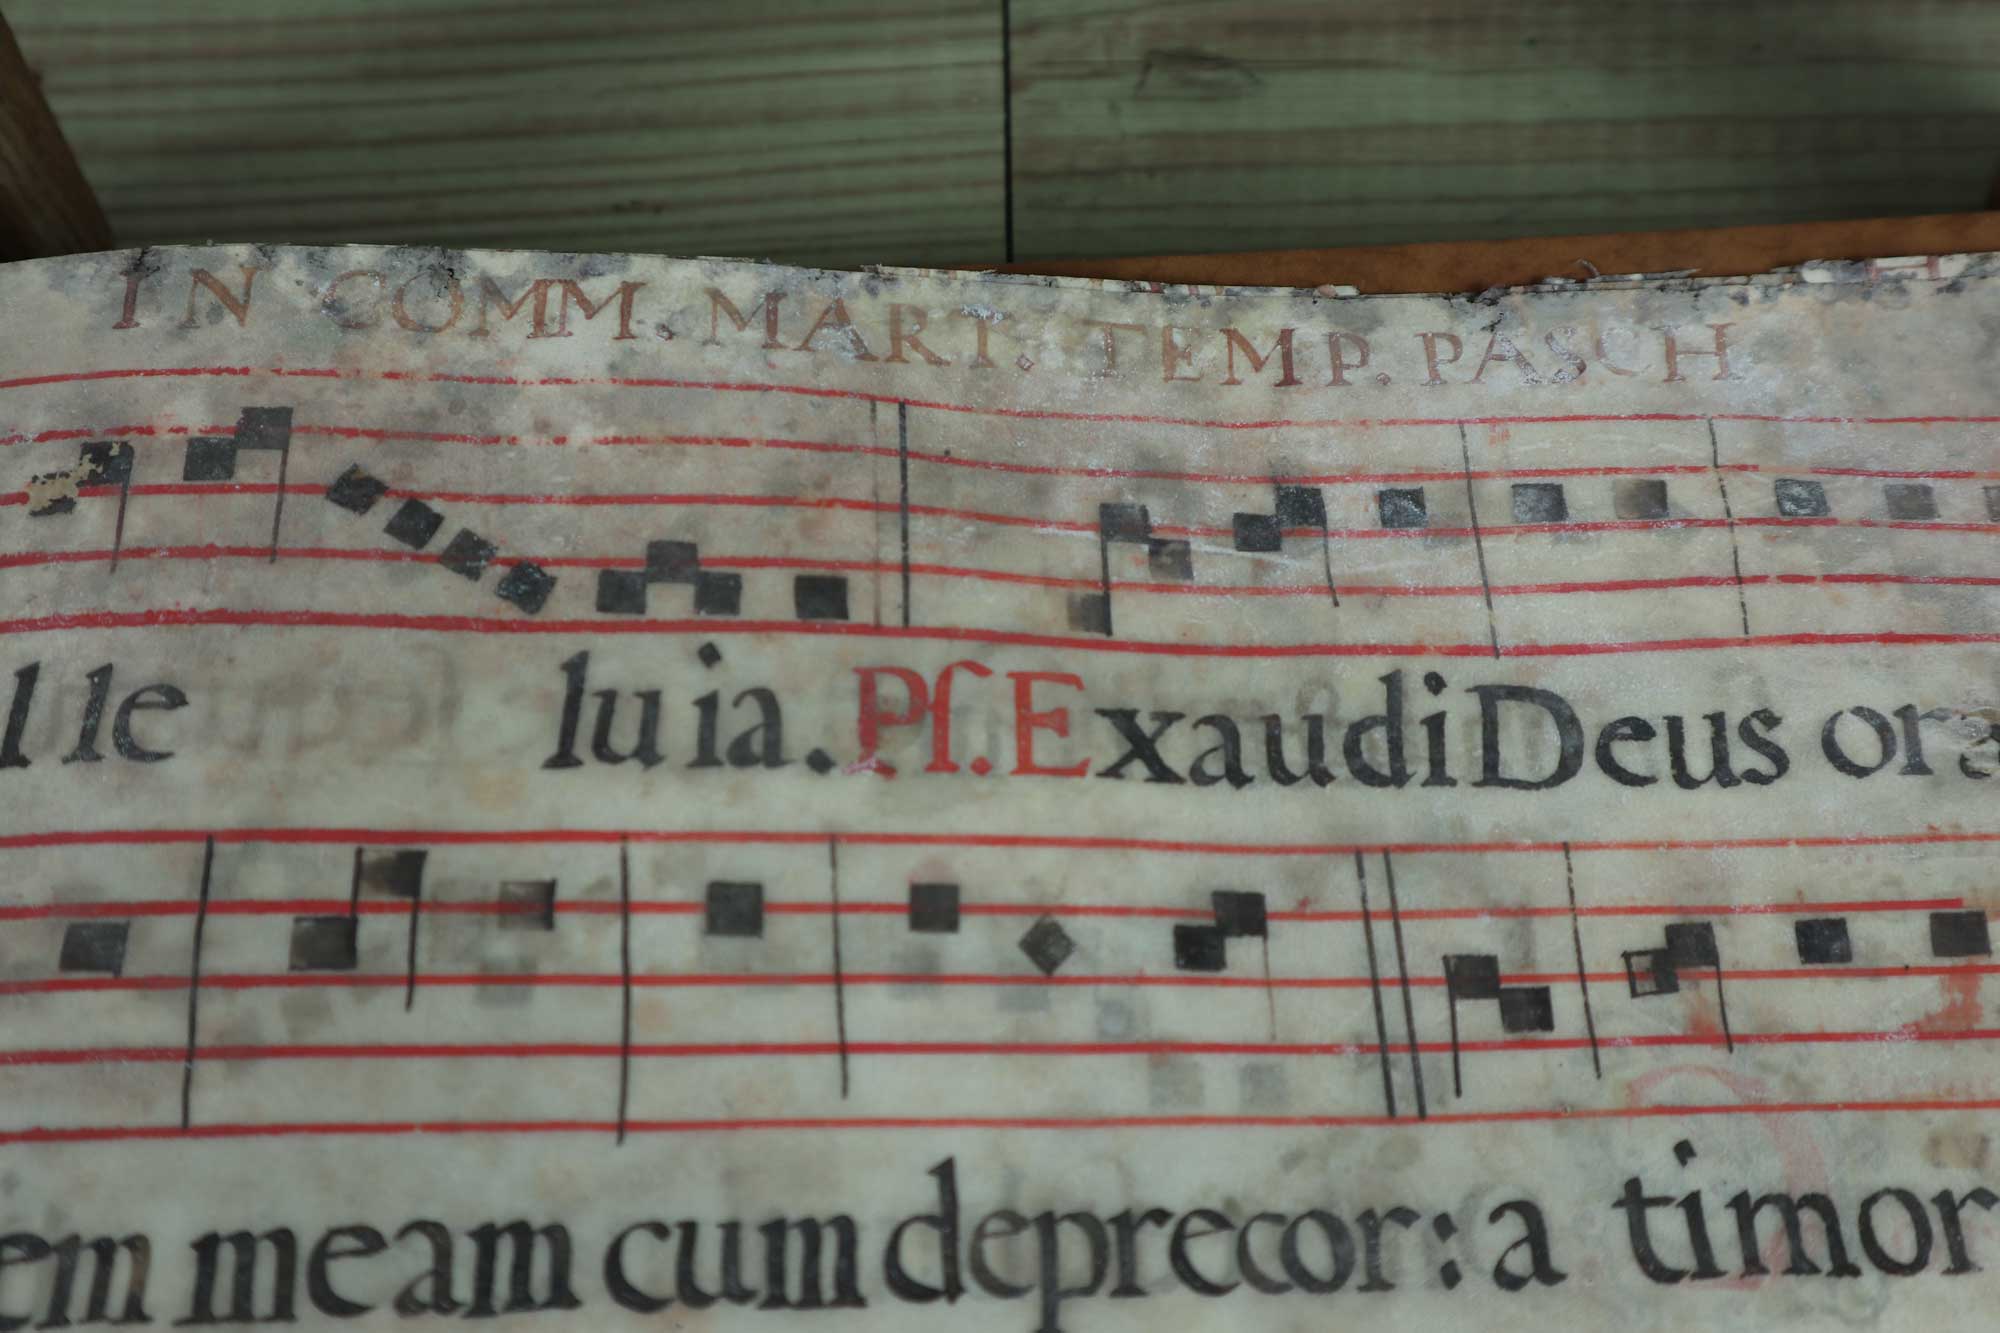 IN COMM. MART. TEMP. PASCH
l le lu ia. Pſ. Exaudi Deus ora
em meam cum deprecor: a timor